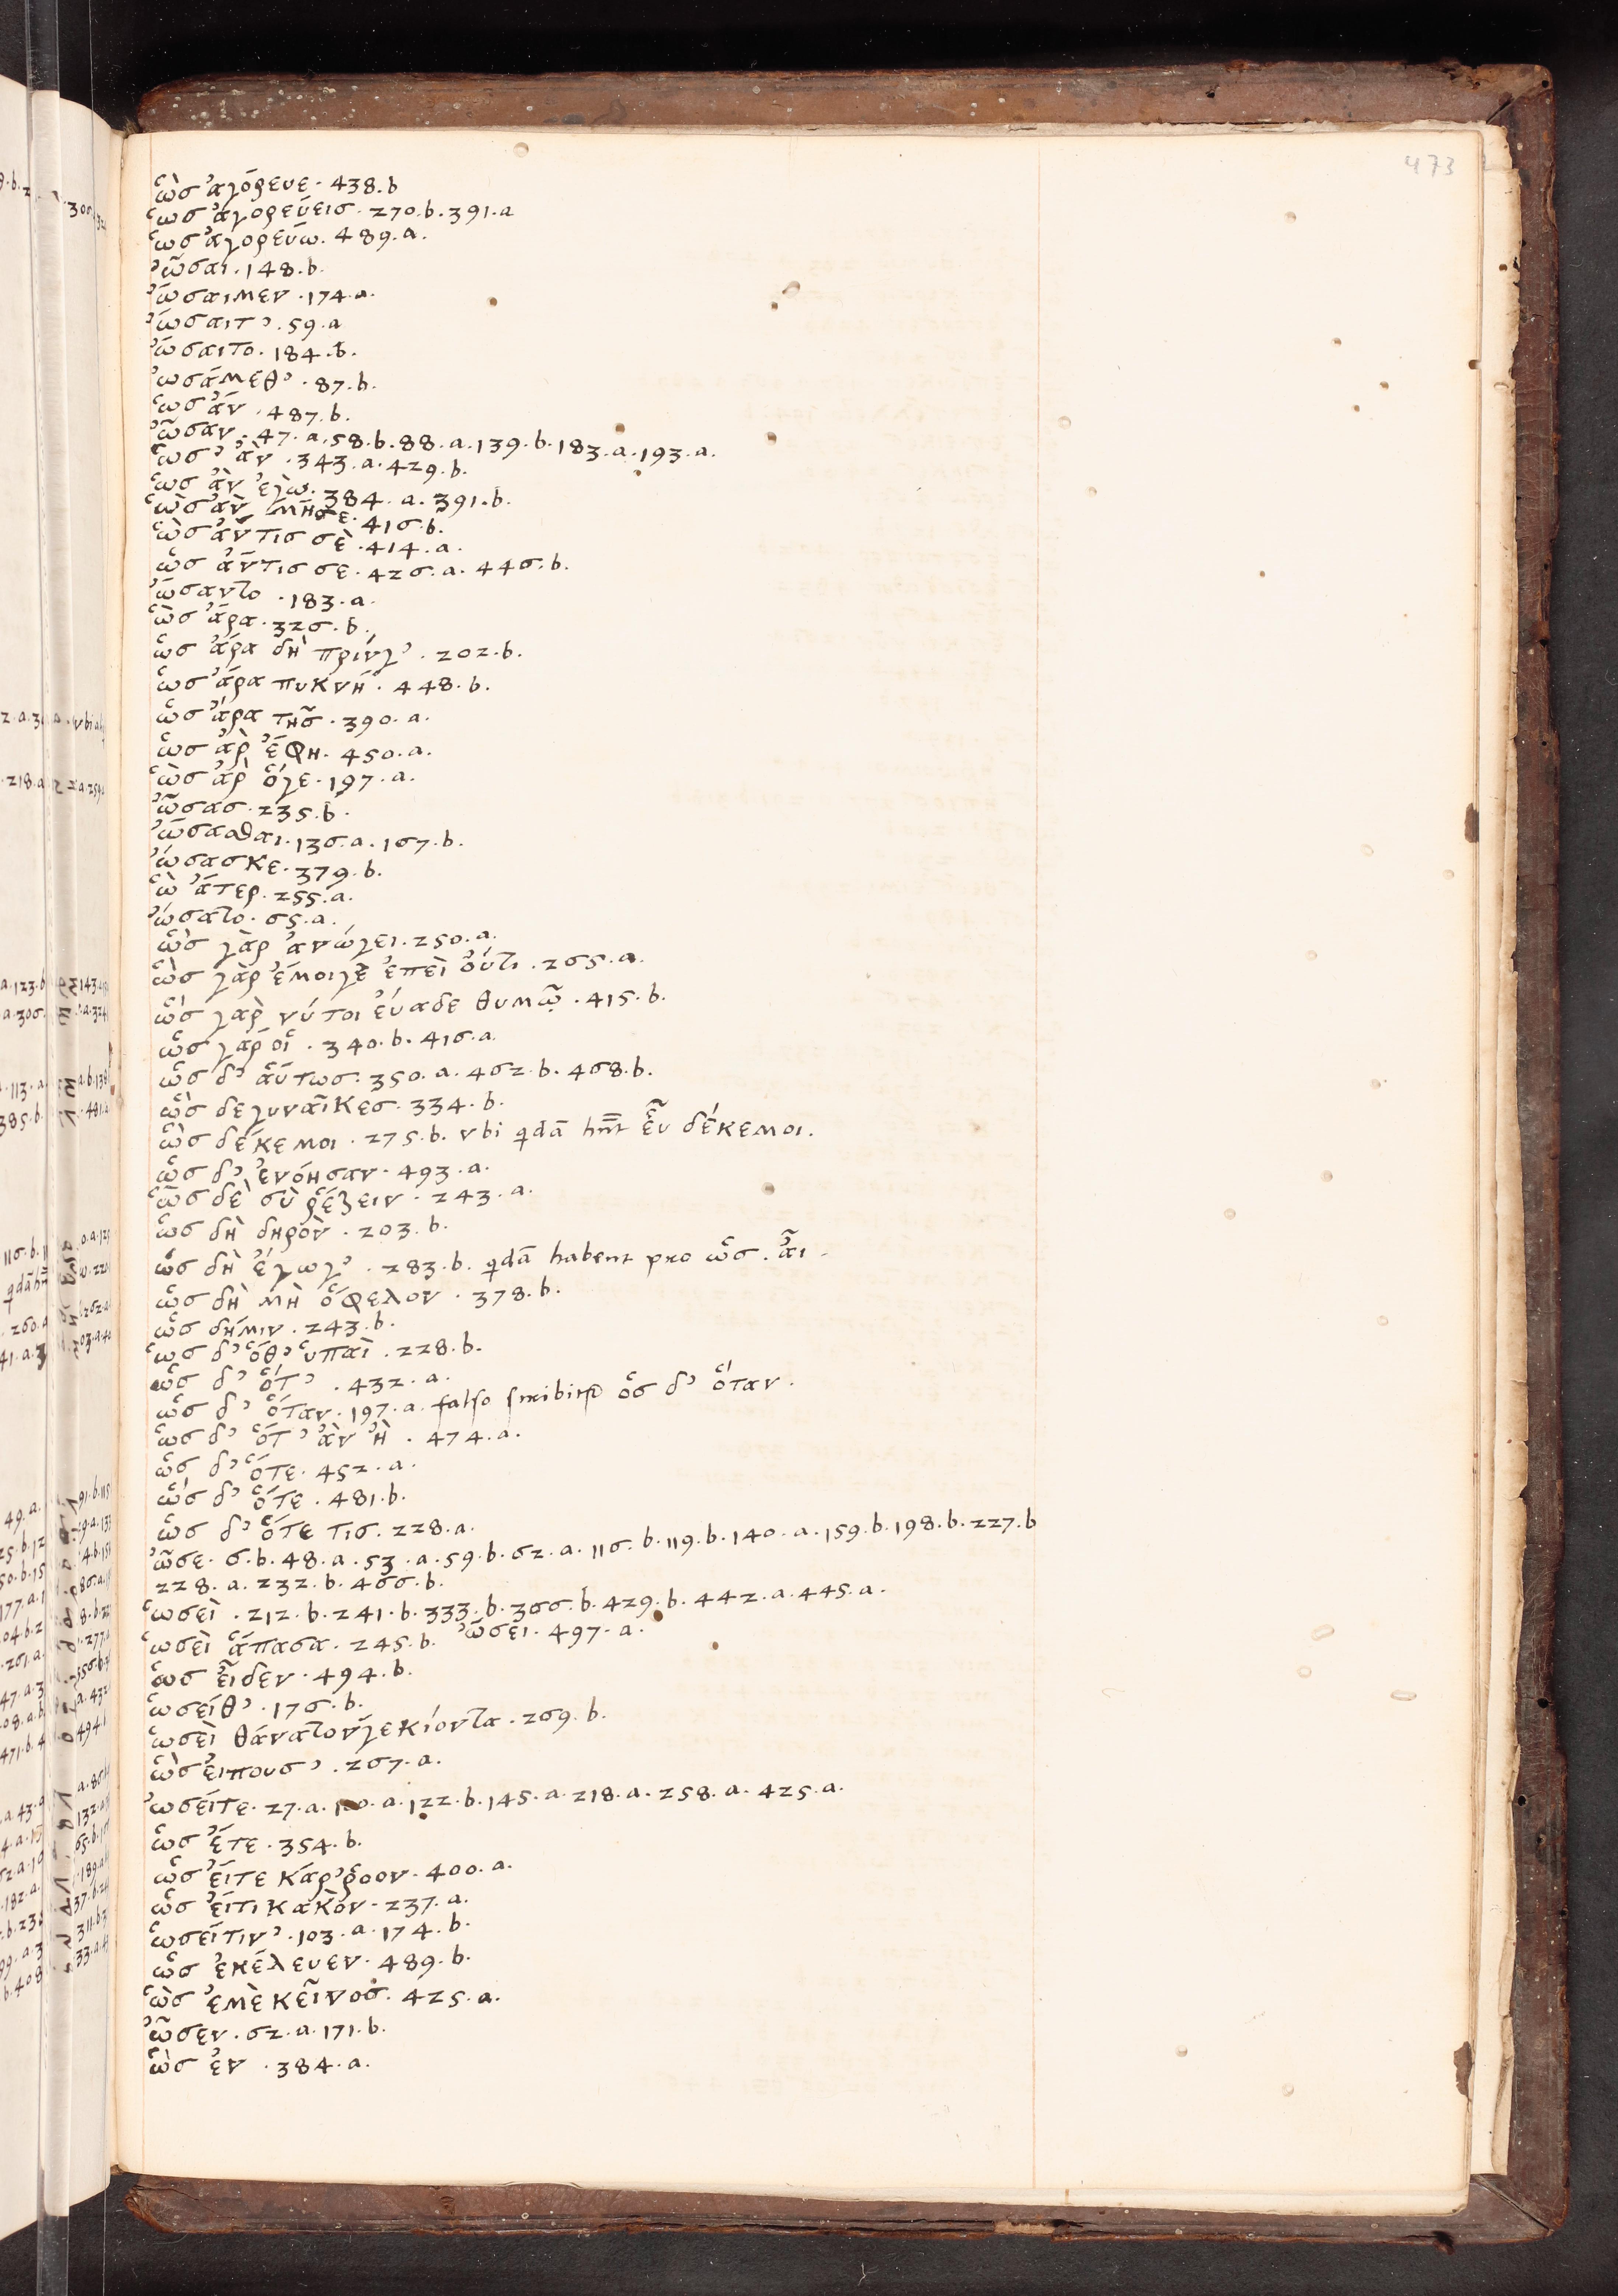 473
ὣσ ἀγόρευε· 438.b
ὡσ ἀγορεύεισ· 270.b.391.a
ὡσ ἀγορεύω. 489.a.
ὦσαι.148.b.
ὤσαιμεν.174.a.
ὤσαιτ᾽.59.a
ὤσαιτο.184.b.
ὠσάμεθ᾽.87.b.
ὡσ ἄν.487.b.
ὦσαν.47.a.58.b.88.a.139.b.183.a.193.a.
ὥσ᾽ ἂν.343.a.429.b.
ὡσ ἂν ἐγὼ.384.a.391.b.
ὡσ ἂν μήσε.416.b.
ὡσ ἄντισ σὲ.414.a.
ὡσ ἄντισ σε.426.a.446.b.
ὤσαντο.183.a.
ὣσ ἄρα.326.b.
ὣσ ἄρα δὴ πρίνγ᾽.202.b.
ὣσ ἄρα πυκνή.448.b.
ὣσ ἄρα τῆσ.390.a.
ὣσ ἄρ ἔφη.450.a.
ὣσ ἄρ ὅγε.197.a.
ὦσασ.235.b.
ὤσασθαι.136.a.167.b.
ὤσασκε.379.b.
ὣ ἄτερ.255.a.
ὤσατο.65.a.
ὣσ γὰρ ἀνώγει.250.a.
ὣσ γὰρ ἔμοιγε ἐπεὶ οὔτι.265.a.
ὥσ γαρ νύτοι εὔαδε θυμῷ.415.b.
ὥσ γάρ οἱ.340.b.416.a.
ὣσ δ᾽ αὔτωσ.350.a.462.b.468.b.
ὣσ δεγυναῖκεσ.334.b.
ὣσ δέκεμοι.275.b. vbi qdā hn̄t εὖ δέκεμοι.
ὣσ δ᾽ ἐνόησαν.493.a.
ὣσ δὲ σὺ ῥέζειν.243.a.
ὣσ δὴ δηρὸν.203.b.
ὥσ δὴ ἔγωγ᾽.283.b. qdā habent pro ὥσ. αἲ.
ὣσ δὴ μὴ ὄφελον.378.b.
ὥσ δήμιν.243.b.
ὡσ δ᾽ ὅθ᾽ ὑπαὶ.228.b.
ὣσ δ᾽ ὅτ᾽.432.a.
ὣσ δ᾽ ὅταν.197.a. falso scribitur ὅσ δ᾽ ὅταν.
ὣσ δ᾽ ὅτ᾽ ἂν ἢ.474.a.
ὣσ δ᾽ ὅτε.452.a.
ὥσ δ᾽ ὅτε.481.b.
ὣσ δ᾽ ὅτε τισ.228.a.
ὦσε.6.b.48.a.53.a.59.b.62.a.116.b.119.b.140.a.159.b.198.b.227.b
228.a.232.b.466.b.
ὡσεὶ.212.b.241.b.333.b.366.b.429.b.442.a.445.a.
ὡσεὶ ἅπασα.245.b. ὦσει.497.a.
ὡσ εἶδεν.494.b.
ὡσείθ᾽.176.b.
ὡσεὶ θάνατονγεκίοντα.269.b.
ὣσ εἰπουσ᾽.267.a.
ὡσείτε.27.a. .a.122.b.145.a.218.a.258.a.425.a.
ὡσ ἔτε.354.b.
ὣσ εἴτε κάρ᾽ῥοον.400.a.
ὥσ εἴτι κακὸν.237.a.
ὡσείτιν᾽.103.a.174.b.
ὡσ ἐκέλευεν.489.b.
ὣσ ἐμὲ κεῖνοσ.425.a.
ὦσεν.62.a.171.b.
ὣσ ἐν.384.a.